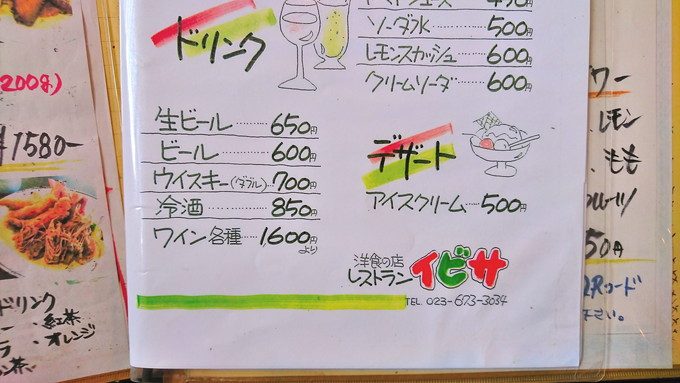 ドリンク
ソーダ水 500円
レモンスカッシュ 600円
クリームソーダ 600円
生ビール 650円
ビール 600円
ウイスキー(ダブル) 700円
冷酒 850円
ワイン各種 1,600円より
デザート
アイスクリーム 500円
洋食の店
レストラン イビサ
TEL 023-673-3034
(200g)
¥1580-
ドリンク
紅茶
オレンジ
ワー
レモン
もも
50円
QRコード
下さい。